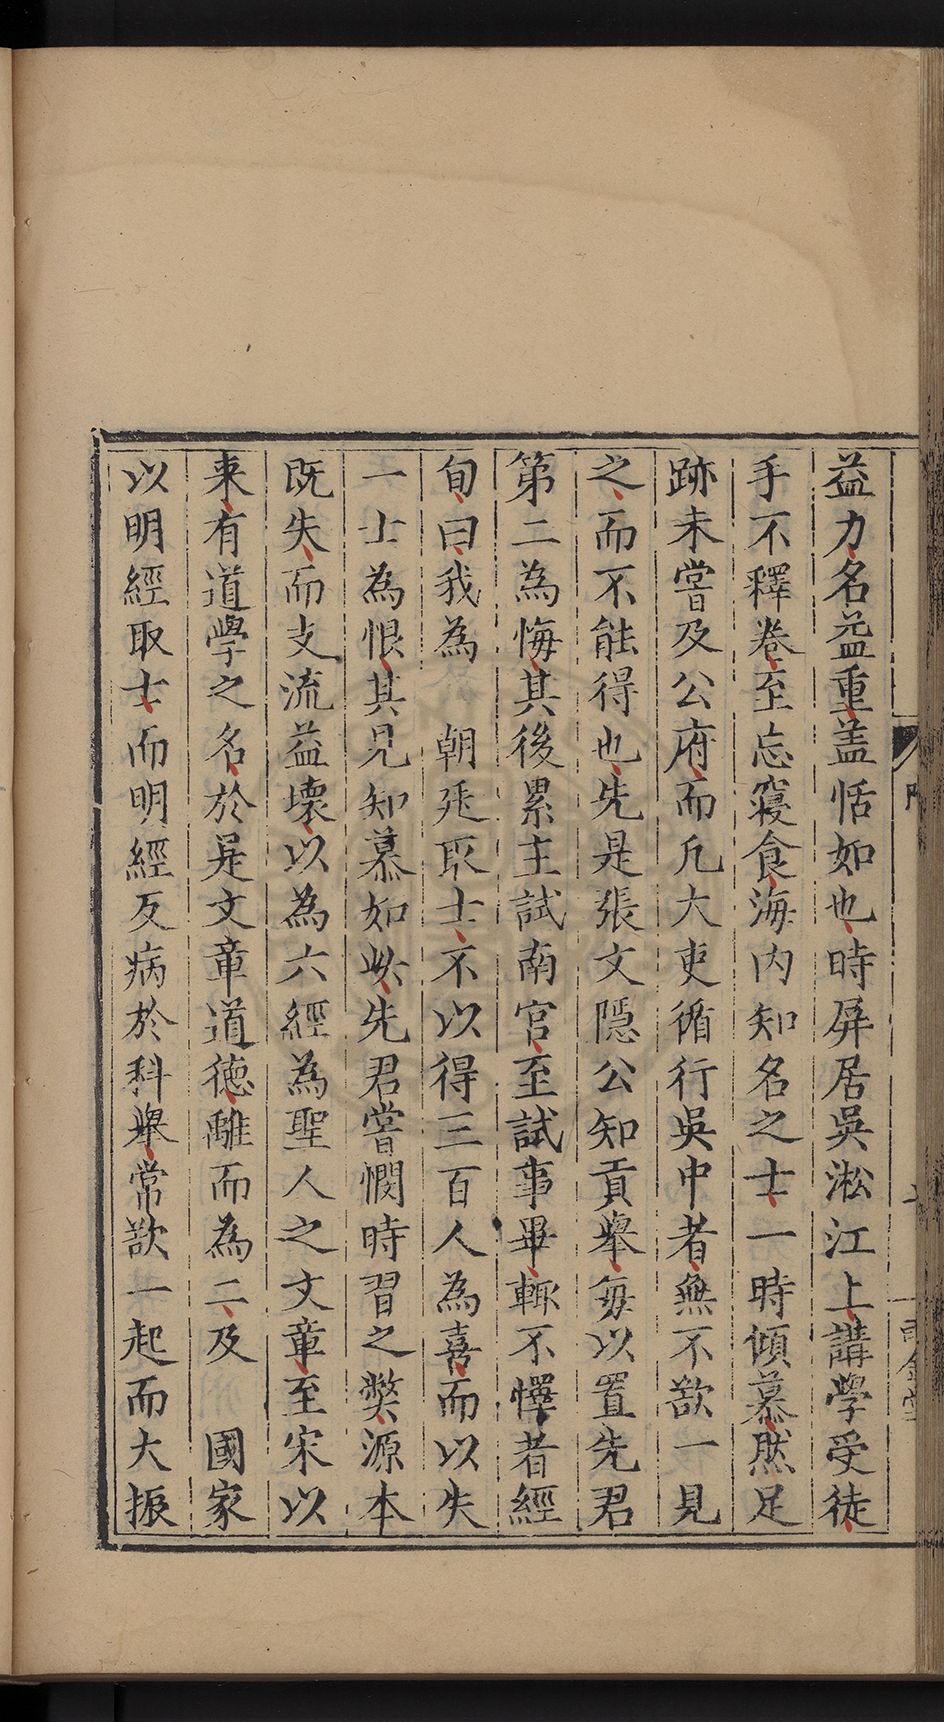 益力名益重盖恬如也時屏居吳淞江上講學受徒
手不釋卷至忘寢食海内知名之士一時傾慕然足
跡未嘗及公府而凡大吏循行吳中者無不欲一見
之而不能得也先是張文隱公知貢舉每以置先君
第二為悔其後累主試南宮至試事畢輒不懌者經
旬曰我為　朝廷取士不以得三百人為喜而以失
一士為恨其見知慕如此先君嘗憫時習之獘源本
既失而支流益壞以為六經為聖人之文章至宋以
来有道學之名於是文章道徳離而為二及　國家
以明經取士而明經反病於科舉常欲一起而大振